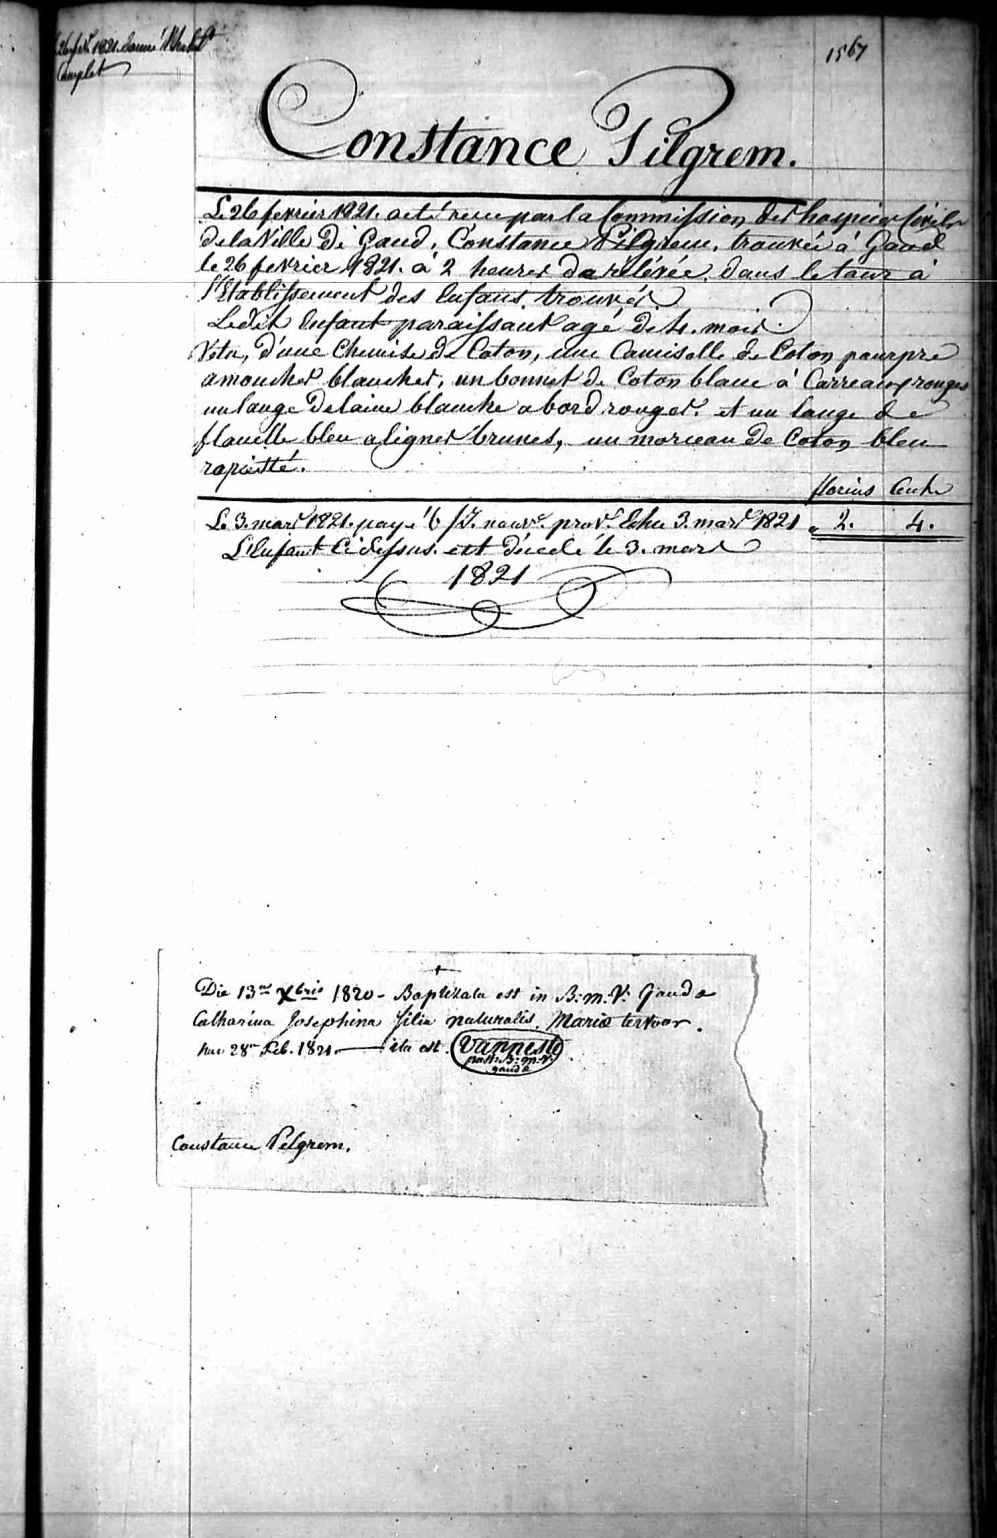 26 fer. 1821. donné
Complet
1567
Constance Pilgrem.
Le 26 fevrier 1821. a été recue par la Commission des hospices Civils
de la Ville de Gand, Constance Pilgrem, trouvée à Gand
le 26 fevrier 1821. à 2 heures de relévée dans le tour à
l'Etablissement des Enfans trouvés
Ledit Enfant paraissant agé de 4. mois.
Vetu, d'une Chemise de Coton, une Camisolle de Coton pourpre
a mouches blanches, un bonnet de Coton blanc à Carreaux rouges
un lange de laine blanche a bord rouges. et un lange de
flanelle bleu a lignes brunes, un morceau de Coton bleu
rapietté.
florins Cents
Le 3. mars 1821. payé 6 nouve. prove. Echu 3. mars 1821 " 2. 4.
L'Enfant Ci dessus. est décedé le 3. mars
1821
Die 13ª Xbris 1820 - Baptizata est in B: m. V: Gandæ
Catharina Josephina filia naturalis. Mariæ tervoor.
hac 28ª Feb. 1821. ita est. Vanneste
past: B: m. V:
gandæ
Constance Pelgrem.